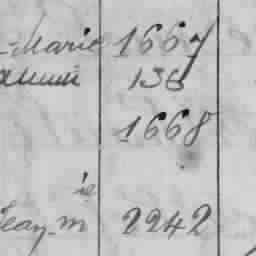 -Marie 1667
136
1668
ie
Jean-M 2242